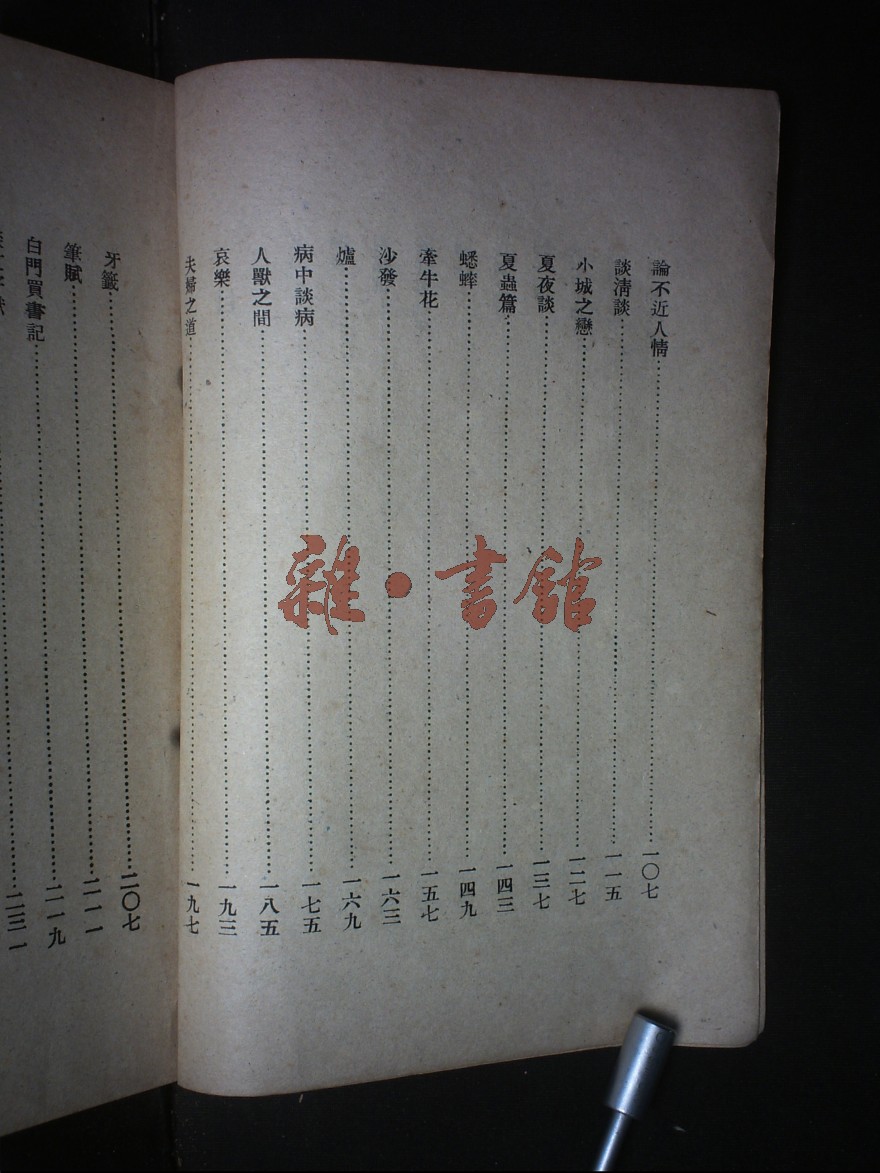 論不近人情…………一〇七
談清談…………一一五
小城之戀…………一二七
夏夜談…………一三七
夏蟲篇…………一四三
蟋蟀…………一四九
牽牛花…………一五七
沙發…………一六三
爐…………一六九
病中談病…………一七五
人獸之間…………一八五
哀樂…………一九三
夫婦之道…………一九七
牙籤…………二〇七
筆賦…………二一一
白門買書記…………二一九
二三一
雜·書館